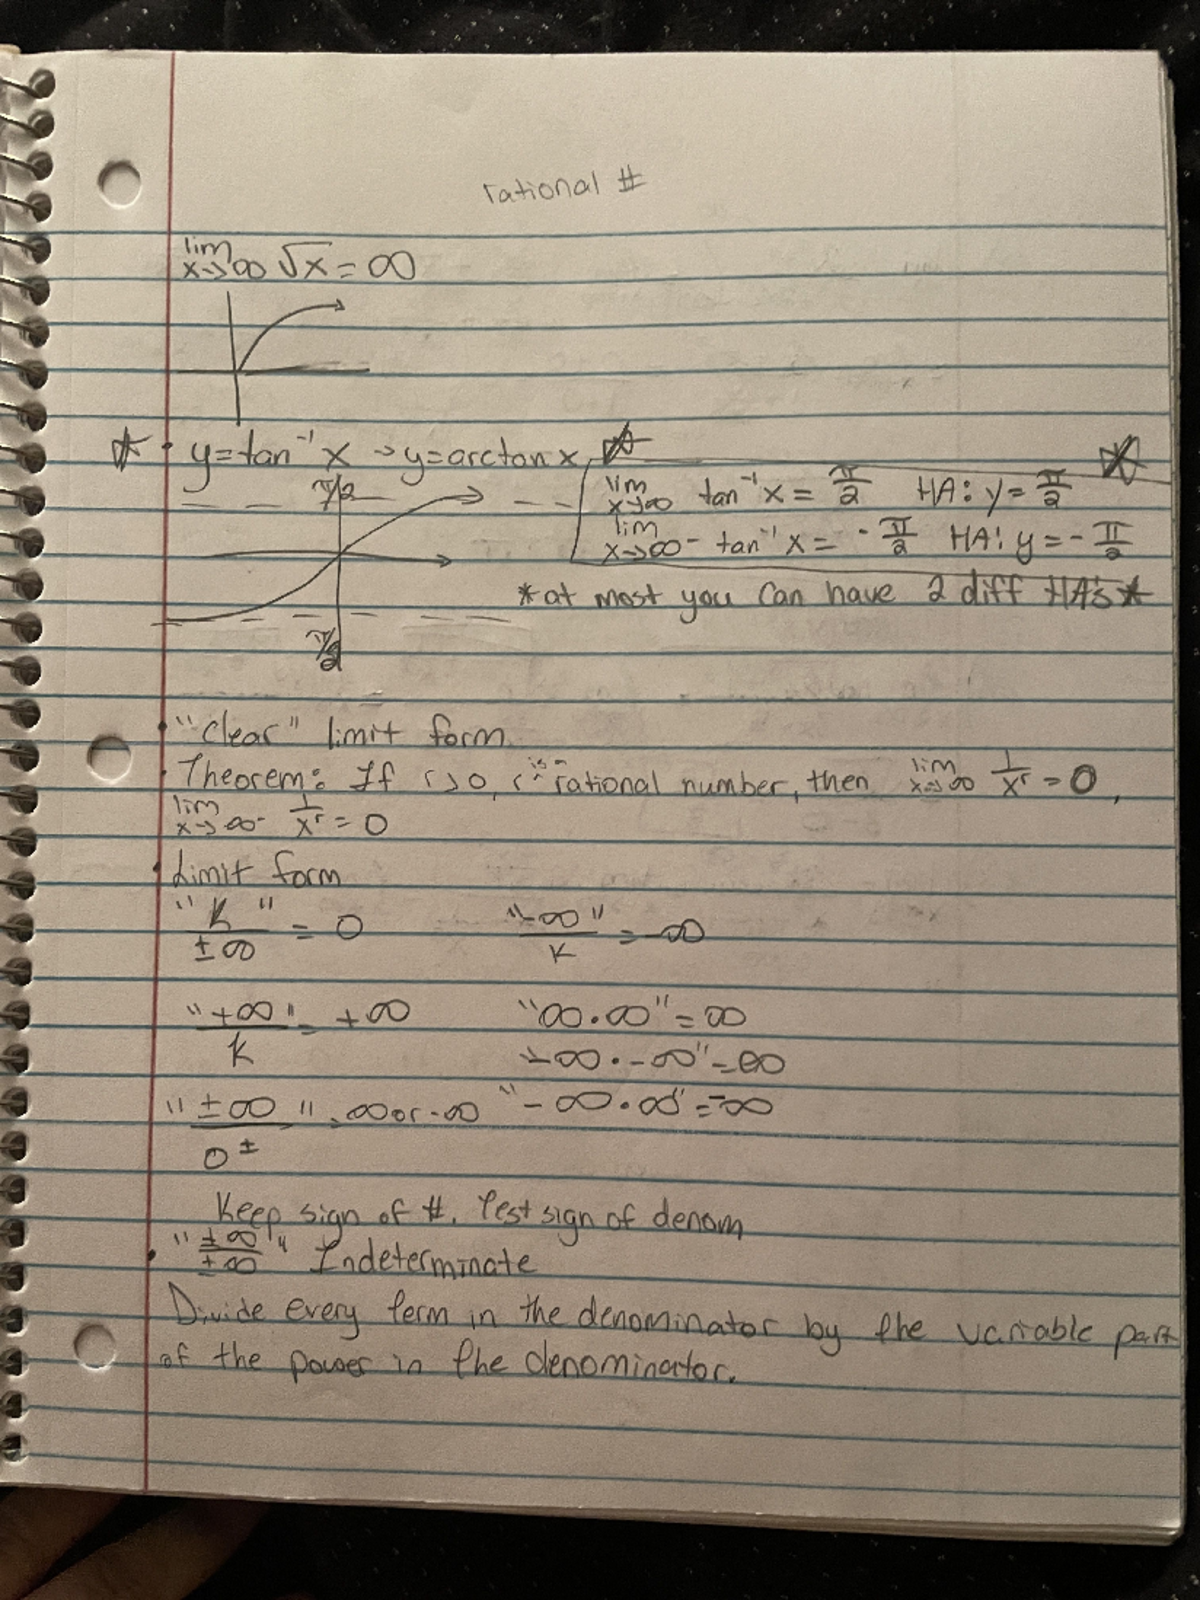 rational #
lim x→∞ √x = ∞
y=tan⁻¹ x → y=arctan x
π/2
lim x→∞ tan⁻¹x = π/2 HA: y = π/2
lim x→∞⁻ tan⁻¹x = -π/2 HA: y = -π/2
*at most you can have 2 diff HA's*
π/2
"Clear" limit form
Theorem: If r>0, r is a rational number, then lim x→∞ 1/xʳ = 0,
lim x→∞⁻ 1/xʳ = 0
Limit form
"K"/±∞ = 0 "-∞"/K = -∞
"+∞"/K = +∞ "∞·∞" = ∞
"-∞·-∞" = ∞
"±∞"/0± = ∞ or -∞ "-∞·∞" = -∞
Keep sign of #. Test sign of denom
"±∞/±∞" Indeterminate
Divide every term in the denominator by the variable part
of the power in the denominator.